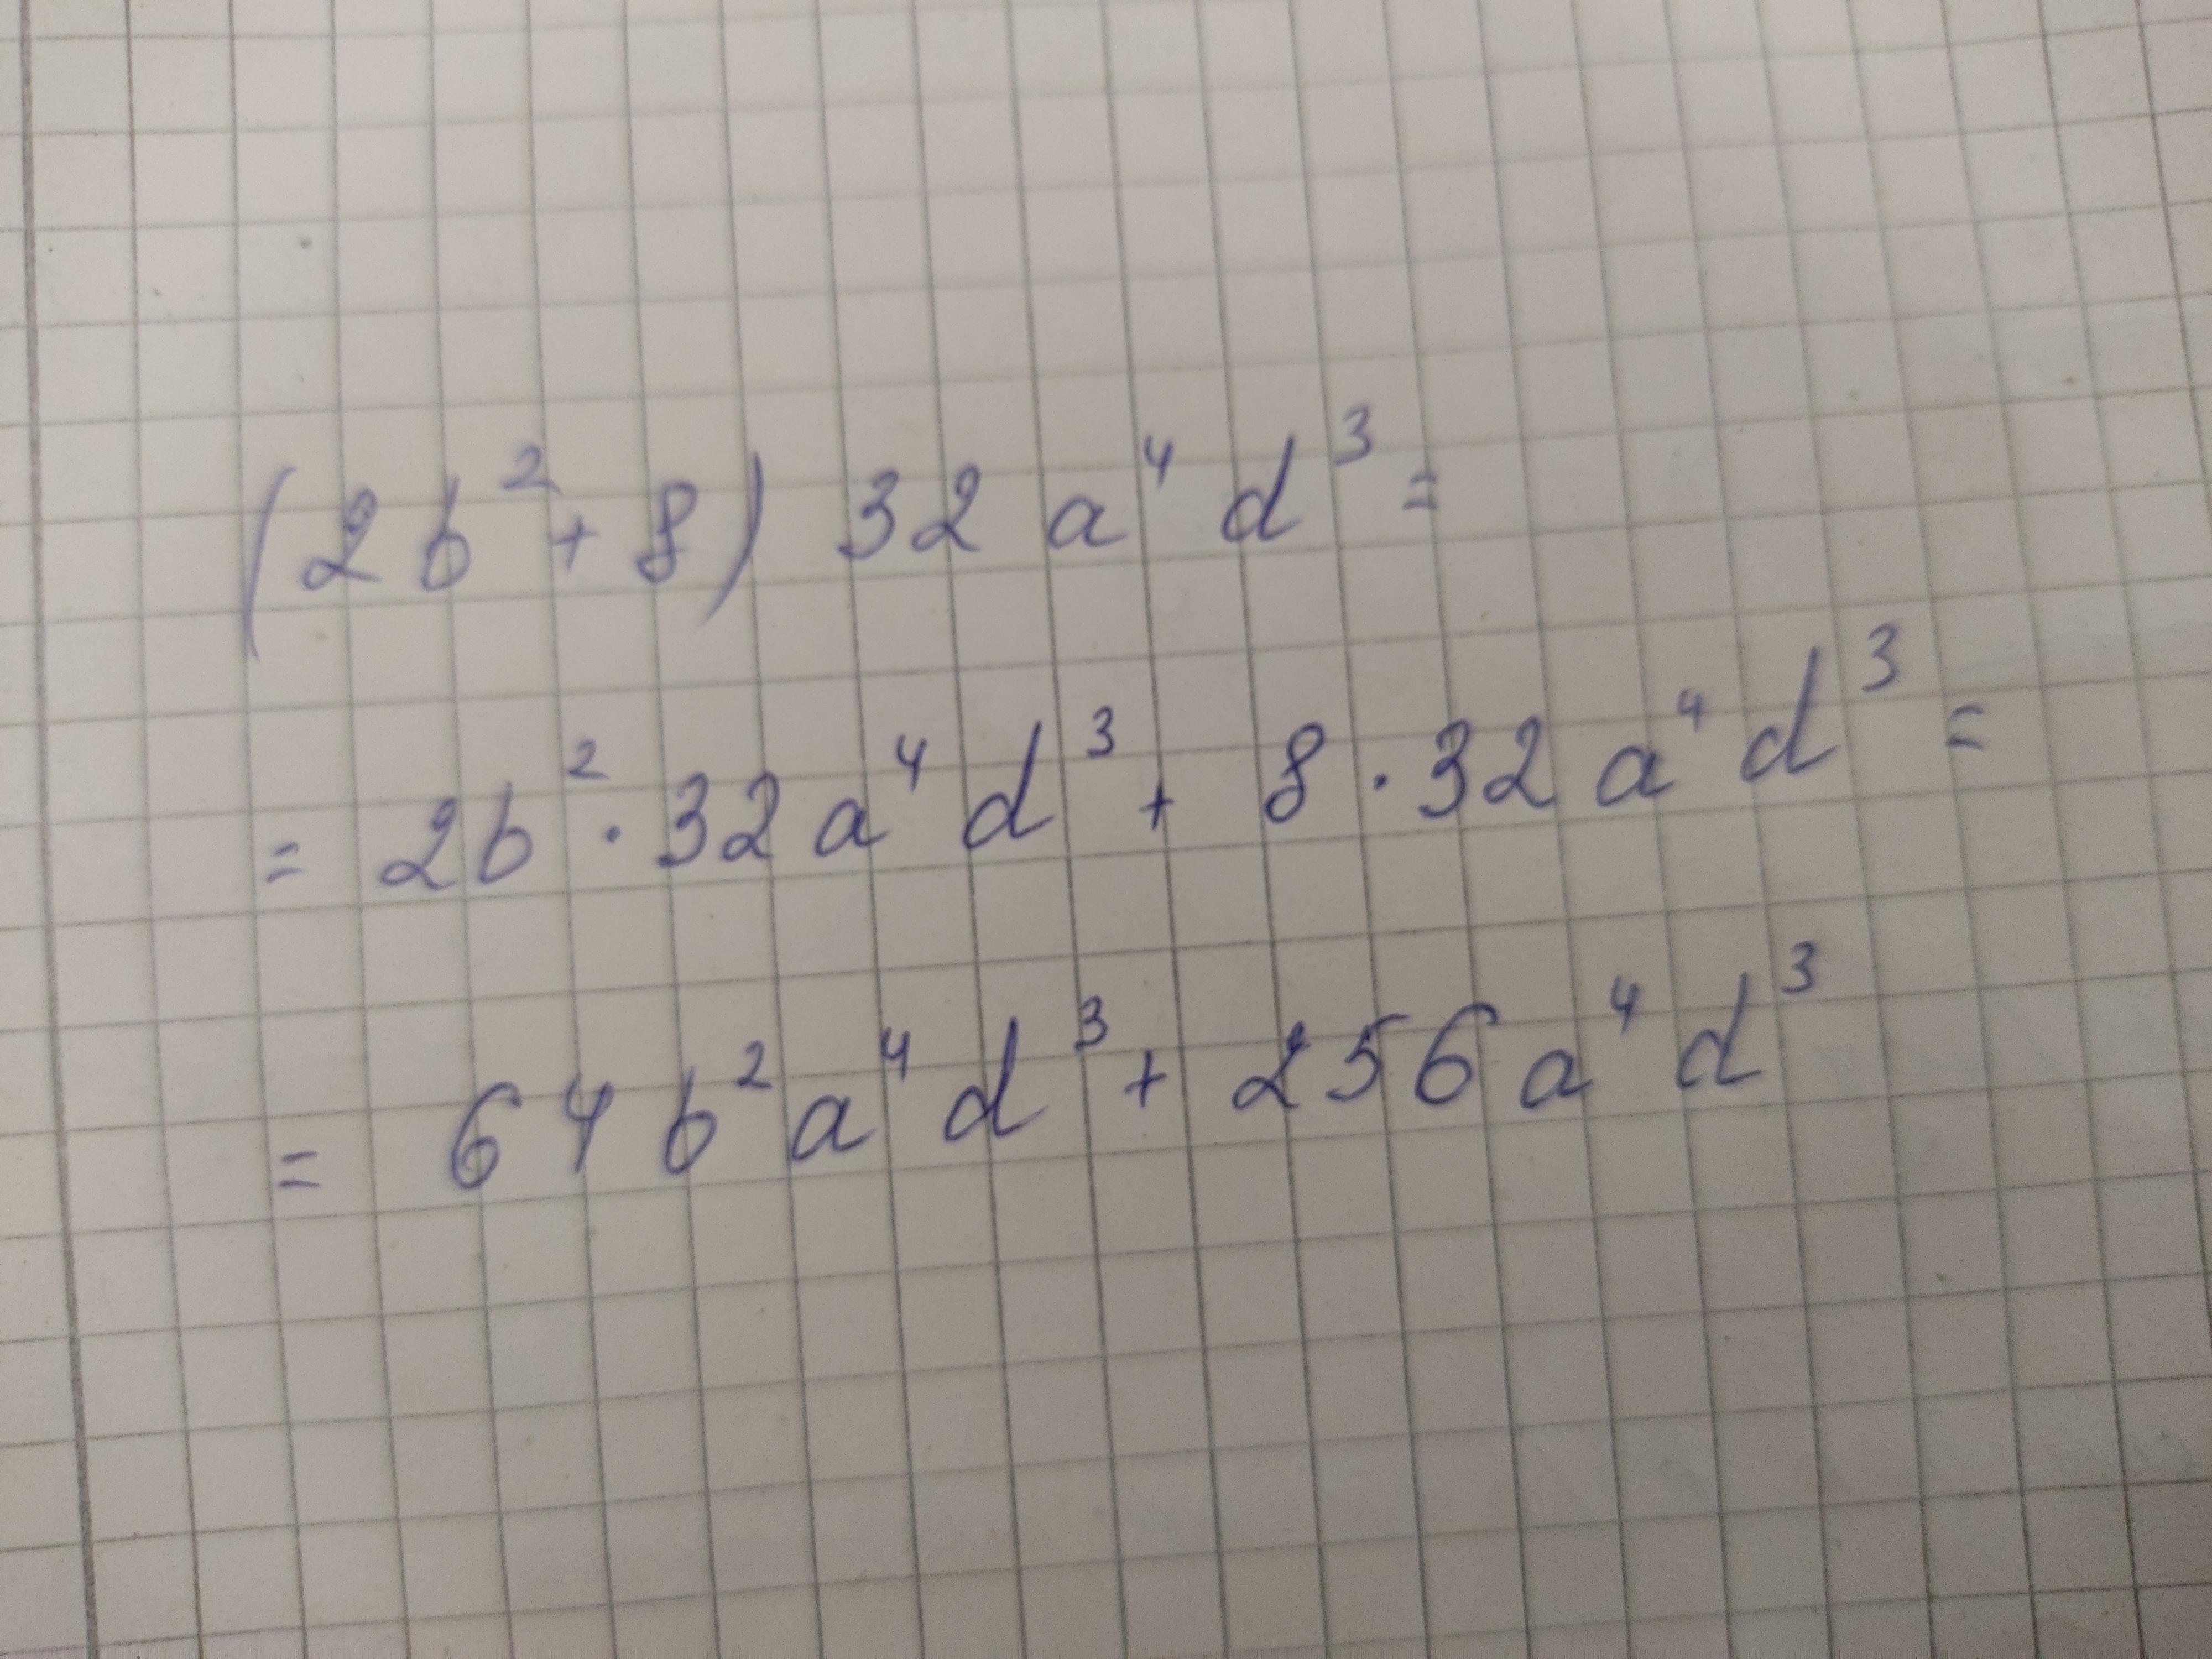 (2b² + 8) 32 a⁴ d³ =
= 2b² · 32 a⁴ d³ + 8 · 32 a⁴ d³ =
= 64 b² a⁴ d³ + 256 a⁴ d³